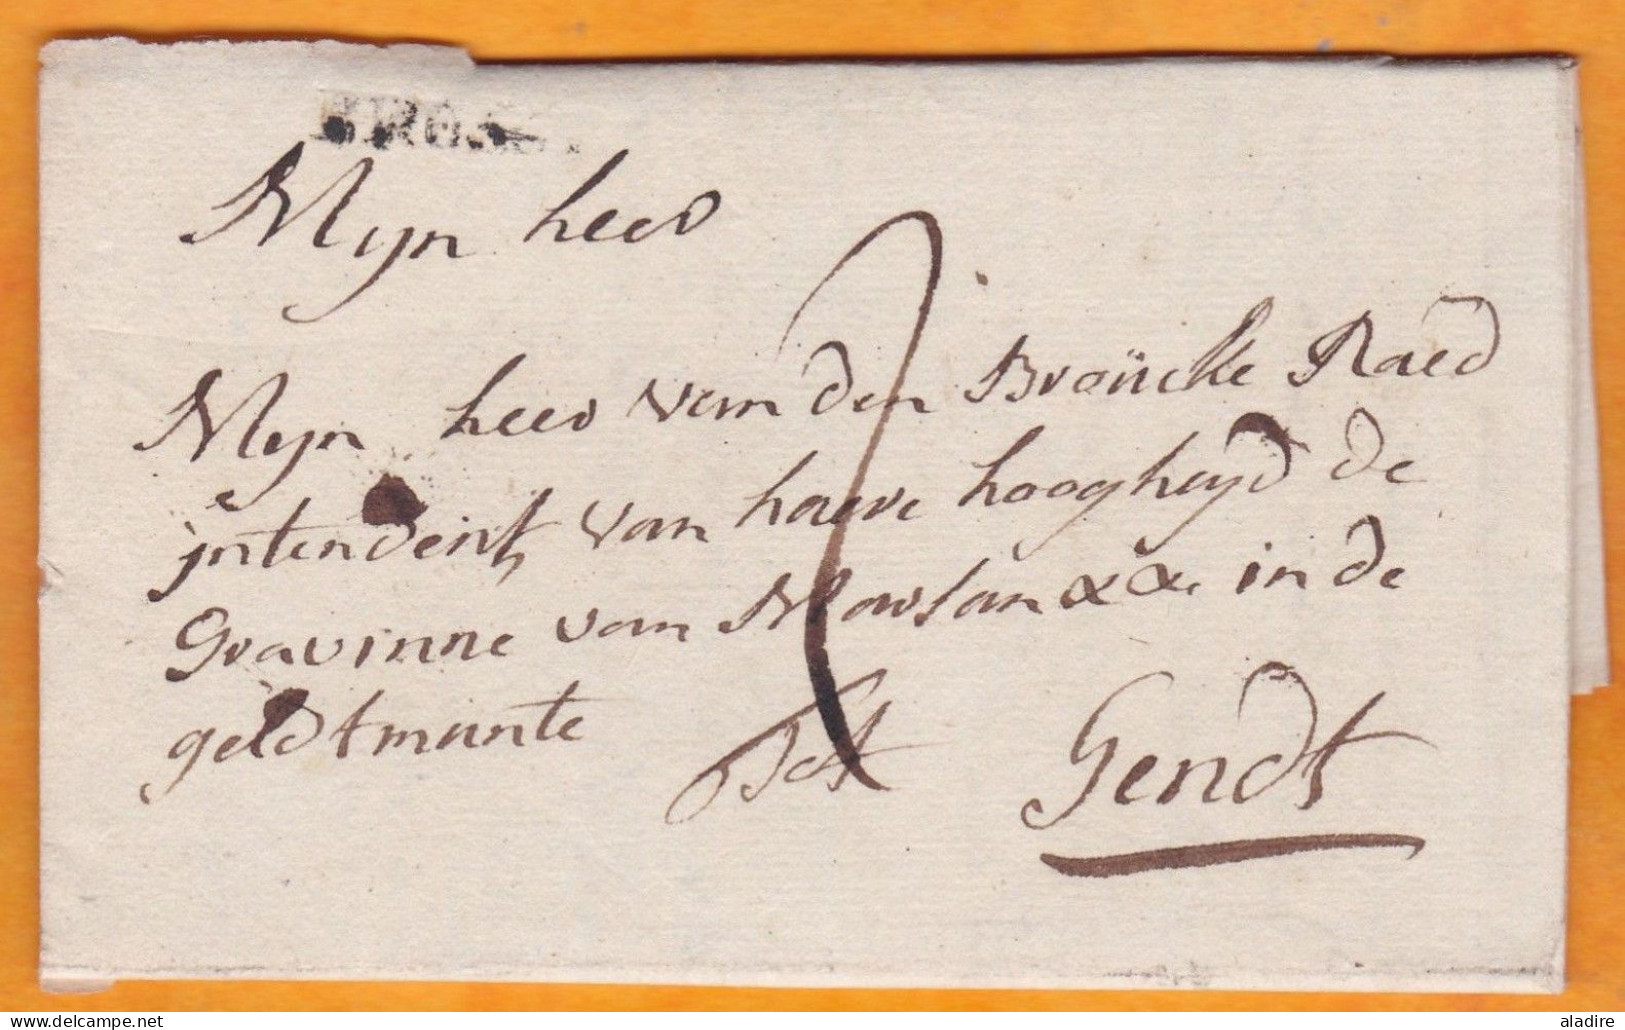 Mijn heer
Mijn heer van den Broücke Raed
intendent van haere hoogheyd de
Gravinne van Morsan &a &a in de
geldtmunte tot Gendt
delcampe.net
aladire